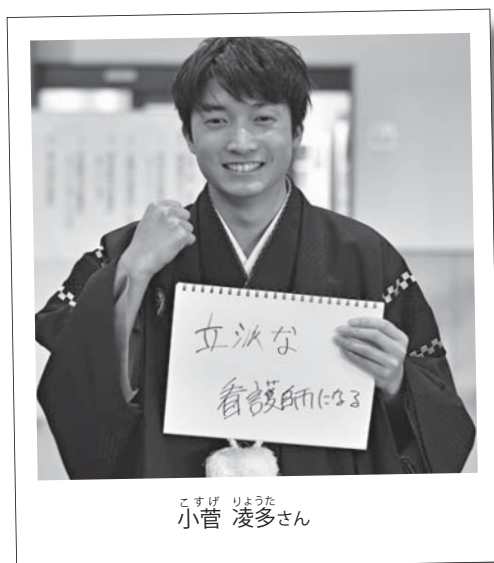 立派な
看護師になる
こすげ りょうた
小菅 凌多さん